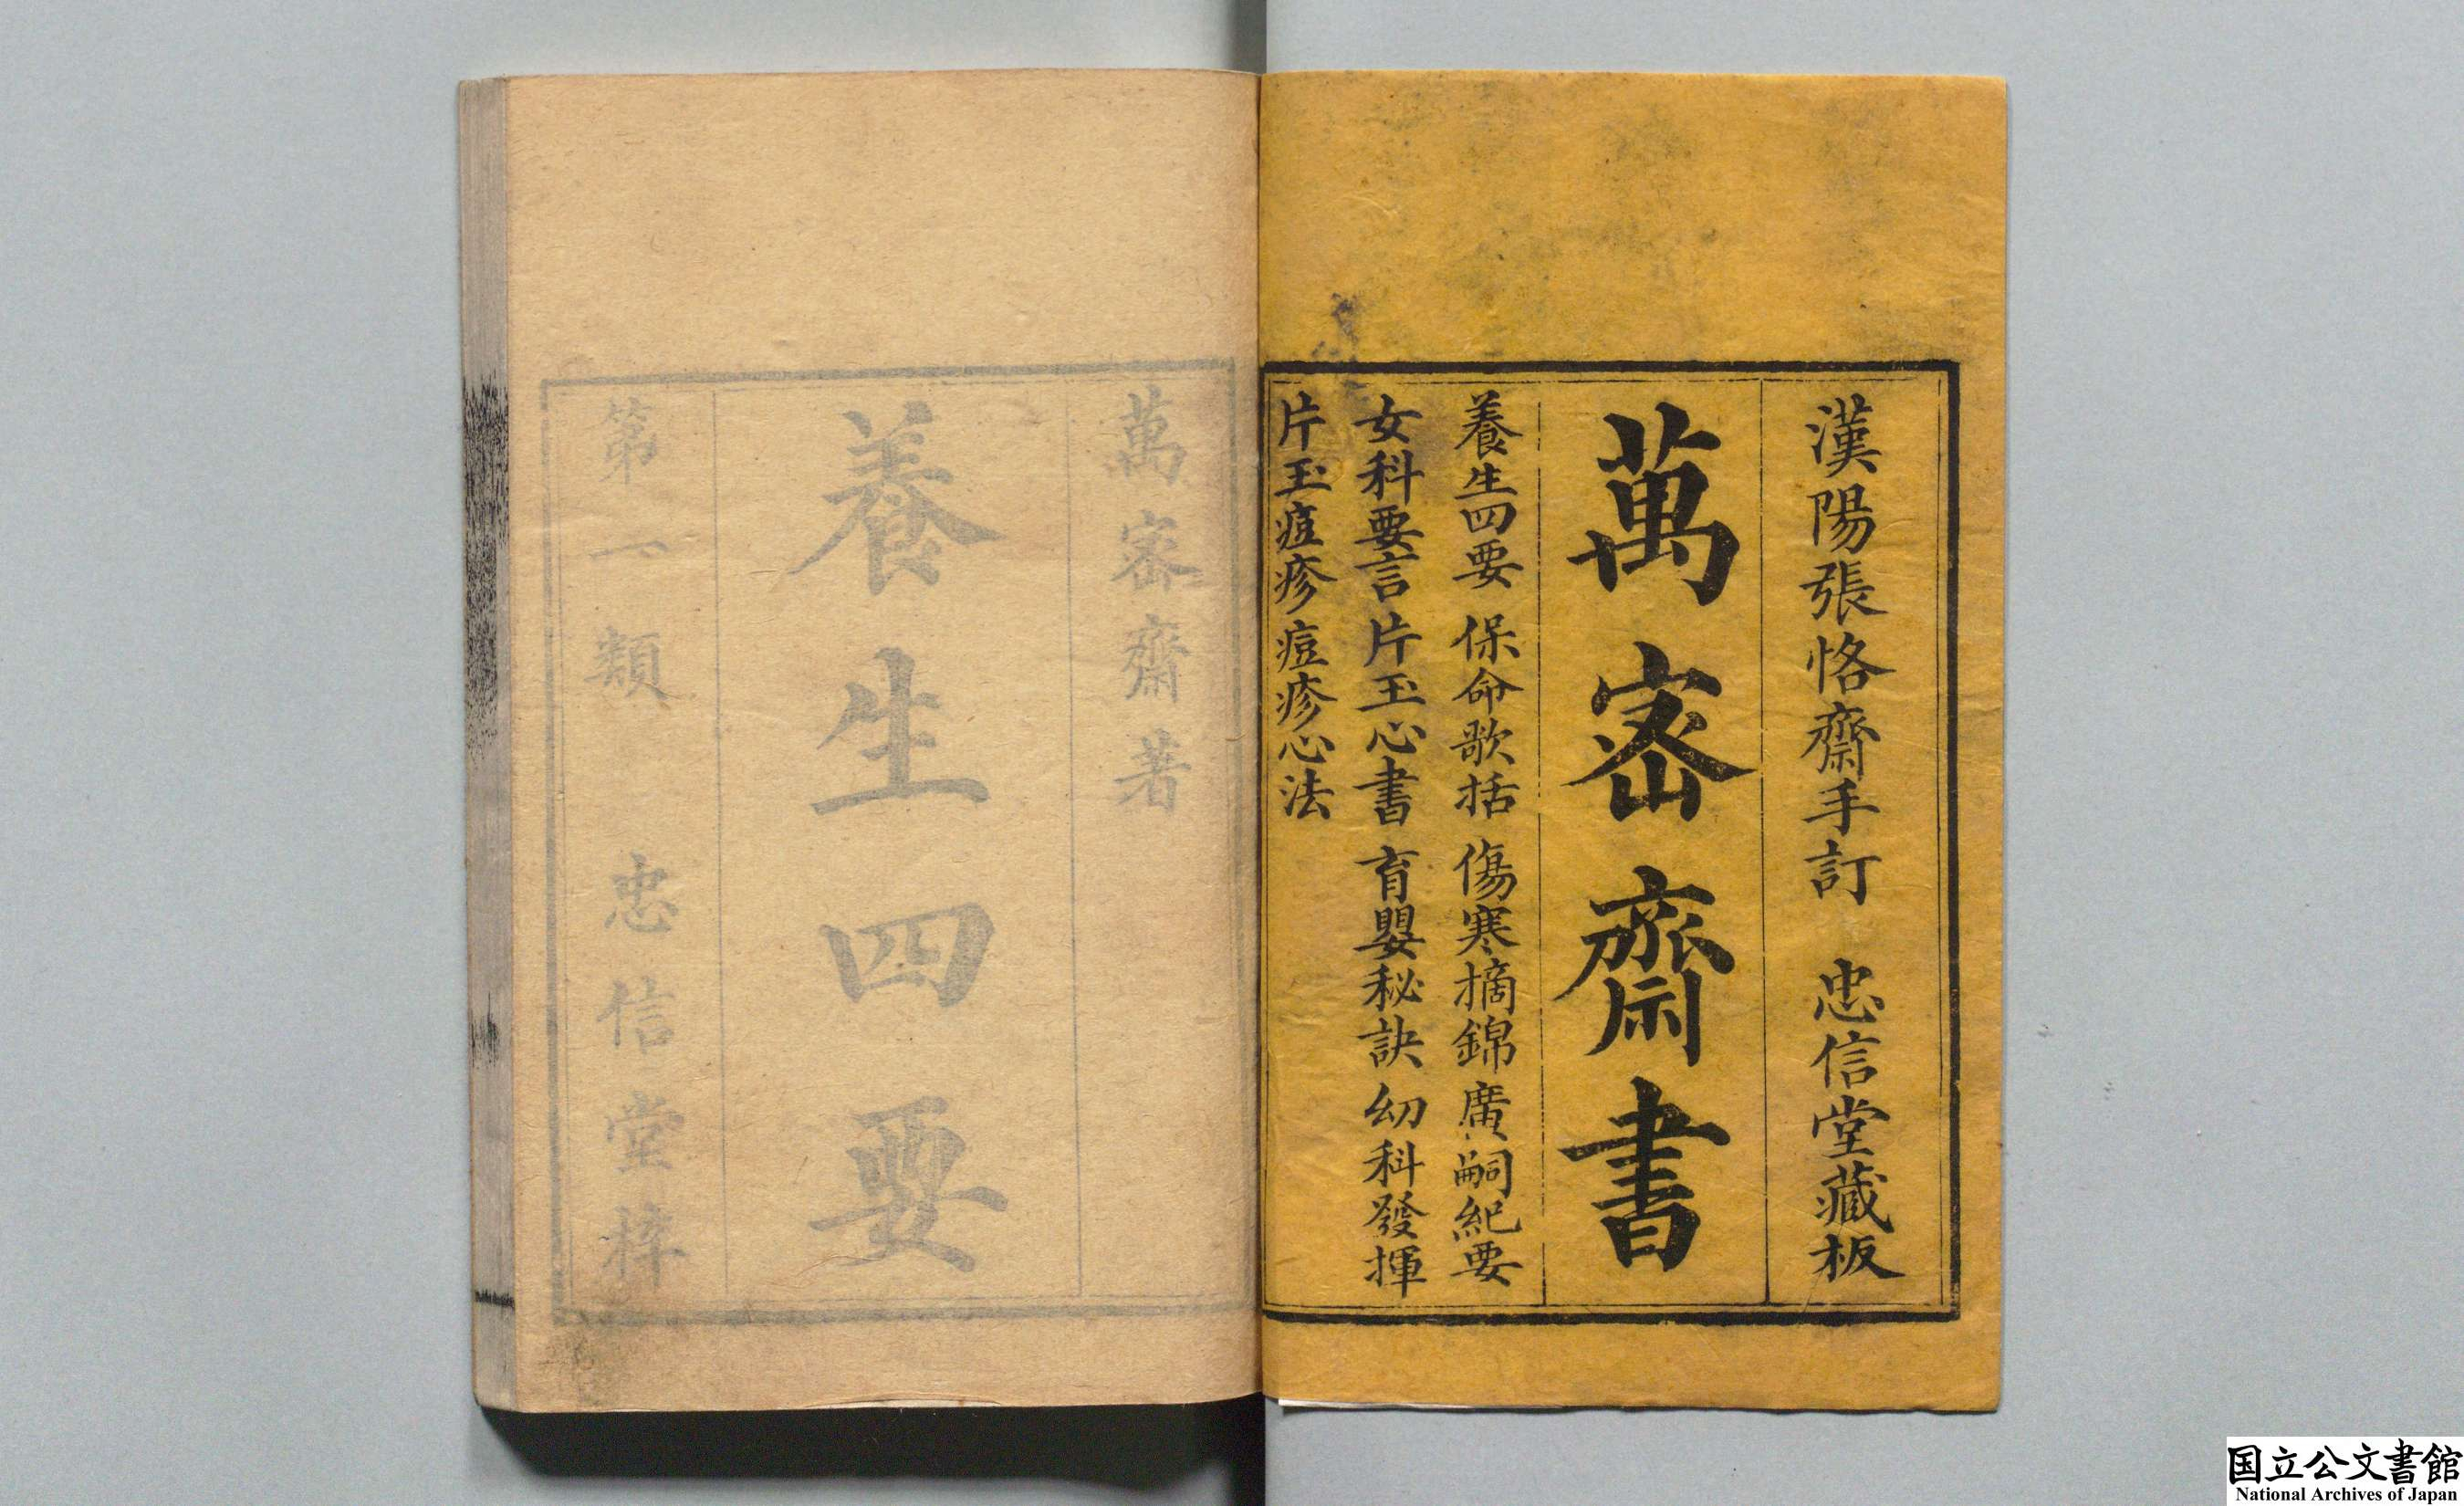 漢陽張恪齋手訂　忠信堂藏板
萬密齋書
養生四要　保命歌括　傷寒摘錦　廣嗣紀要
女科要言　片玉心書　育嬰秘訣　幼科發揮
片玉痘疹　痘疹心法
萬密齋著
養生四要
第一類　忠信堂梓
国立公文書館
National Archives of Japan